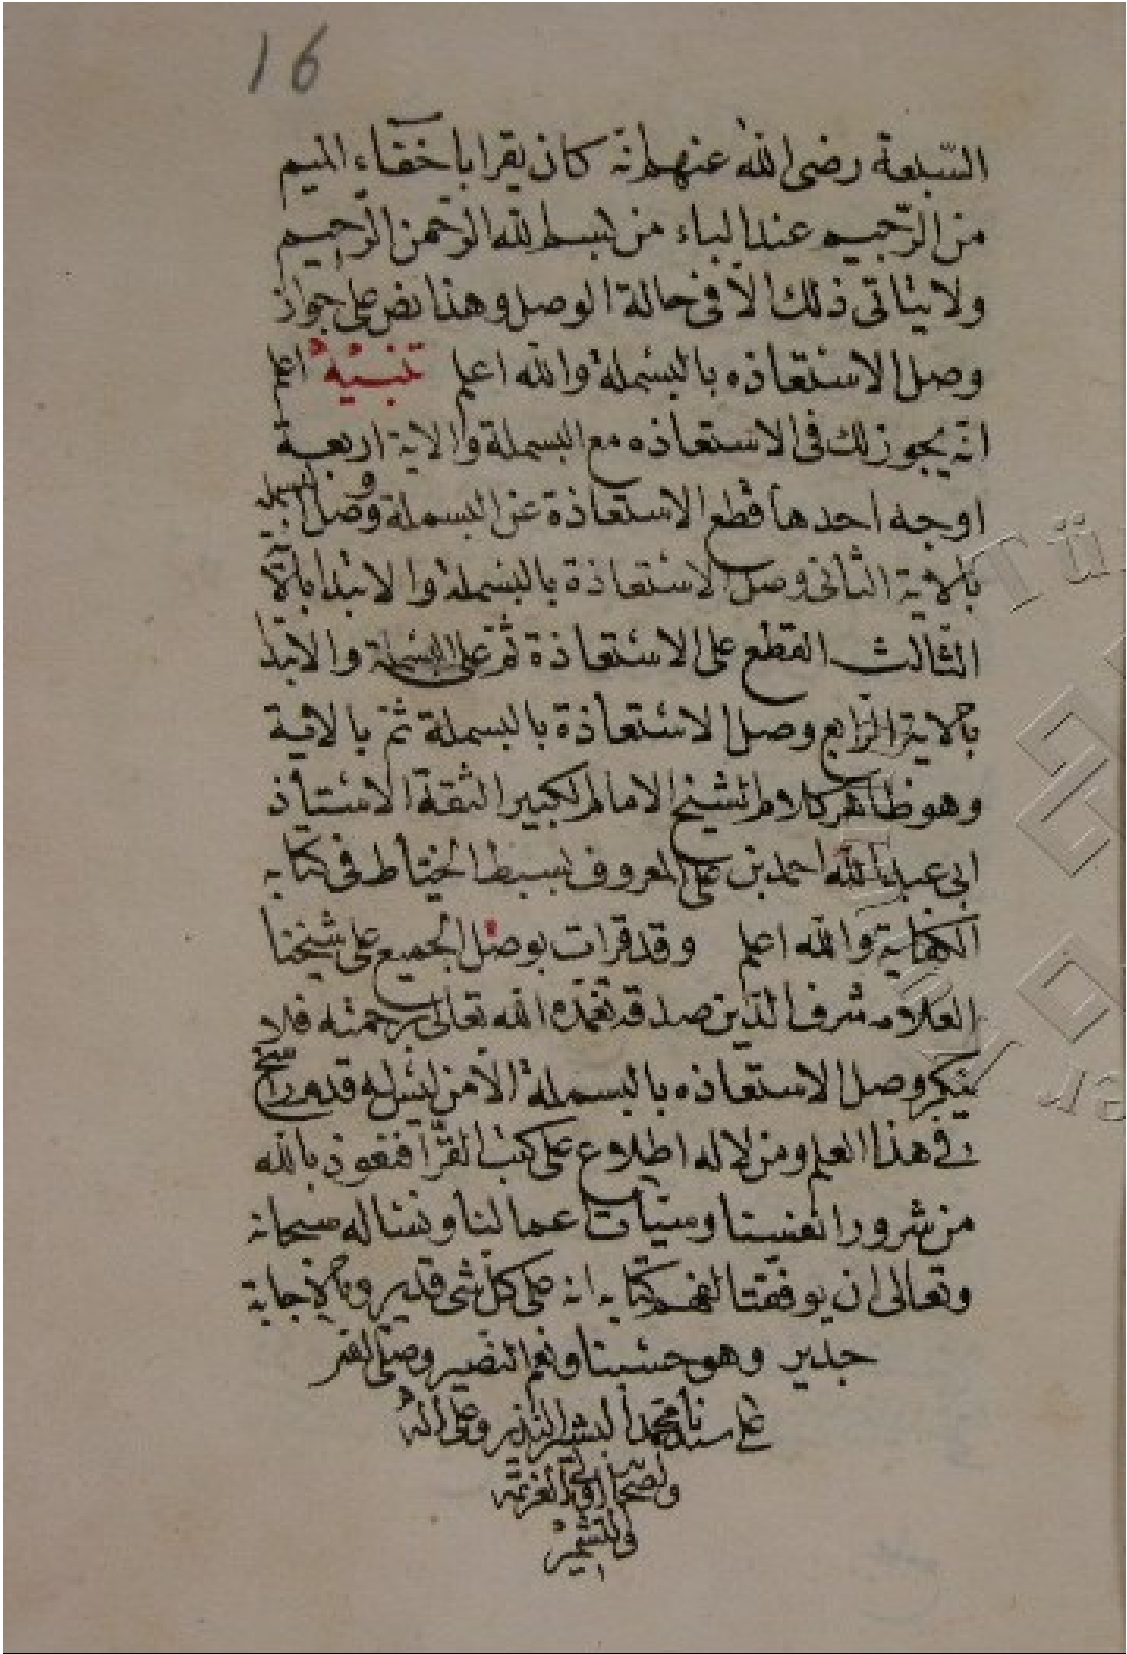 16
السّبعة رضى الله عنهم انه كان يقرا باخفاء الميم
من الرّحيم عند الباء من بسم الله الرّحمن الرّحيم
ولا يتاتى ذلك الا فى حالة الوصل وهذا نص على جواز
وصل الاستعاذه بالبسملة والله اعلم تنبيه اعلم
انه يجوز لك فى الاستعاذه مع البسملة والاية اربعة
اوجه احدها قطع الاستعاذة عن البسملة ووصل البسملة
بالاية الثانى وصل الاستعاذة بالبسملة والابتدا بالاية
الثالث القطع على الاستعاذة ثم على البسملة والابتدا
بالاية الرّابع وصل الاستعاذة بالبسملة ثم بالاية
وهو ظاهر كلام الشيخ الامام الكبير الثقة الاستاذ
ابى عبد الله احمد بن على المعروف بسبط الخيّاط فى كتابه
الكفاية والله اعلم وقد قرات بوصل الجميع على شيخنا
العلامه شرف الدّين صدقه تغمّده الله تعالى برحمته فلا
ينكر وصل الاستعاذه بالبسملة الا من ليس له قدم راسخ
فى هذا العلم ومن لا له اطلاع على كتب القرّا فنعوذ بالله
من شرور انفسنا وسيات عمالنا ونساله سبحانه
وتعالى ان يوفقنا لفهم كتابه انه على كل شى قدير وبالاجابة
جدير وهو حسبنا ونعم النصير وصلى الله
على سيدنا محمد البشير النذير وعلى اله